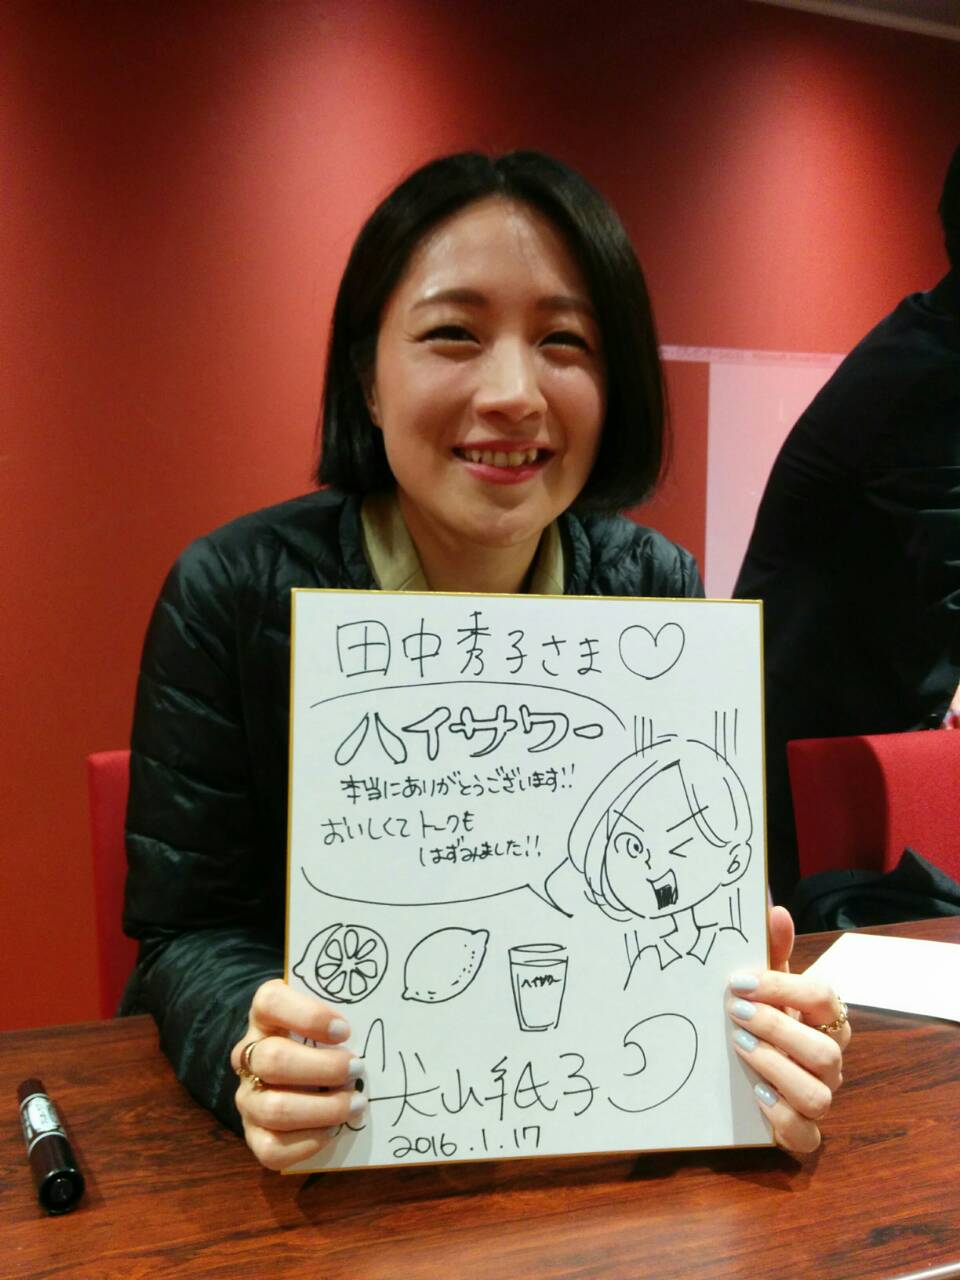 田中秀子さま♡
ハイサワー
本当にありがとうございます!!
おいしくてトークも
はずみました!!
ハイサワー
犬山紙子
2016.1.17